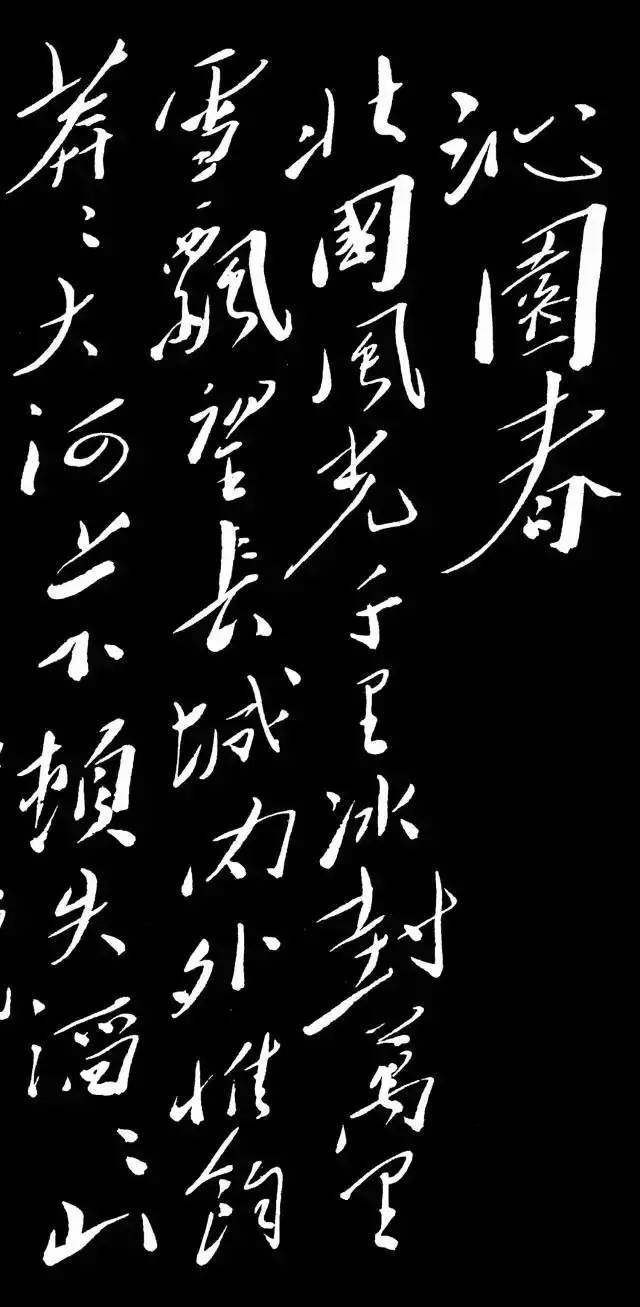 沁園春
北國風光千里冰封萬里
雪飄望長城內外惟餘
莽〻大河上下頓失滔〻山